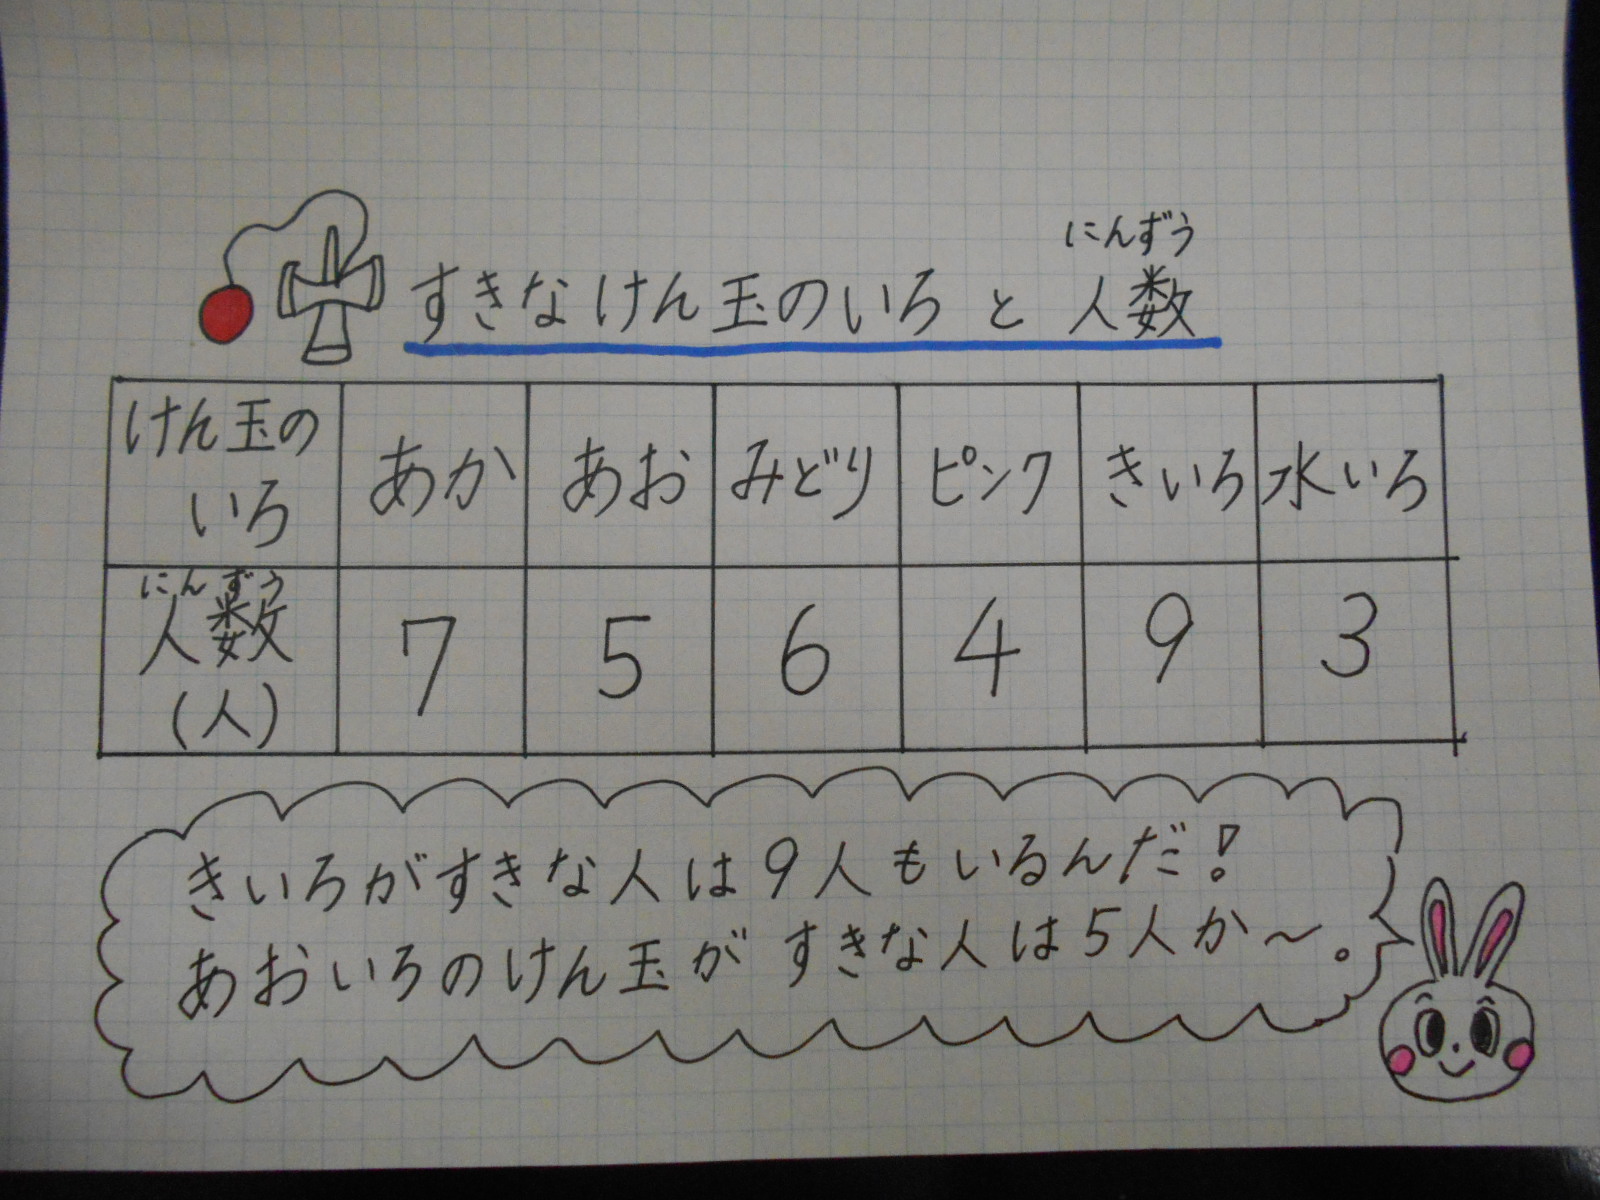 にんずう
すきなけん玉のいろと人数
けん玉の
いろ
あか
あお
みどり
ピンク
きいろ
水いろ
にんずう
人数
(人)
7
5
6
4
9
3
きいろがすきな人は9人もいるんだ!
あおいろのけん玉がすきな人は5人か〜。